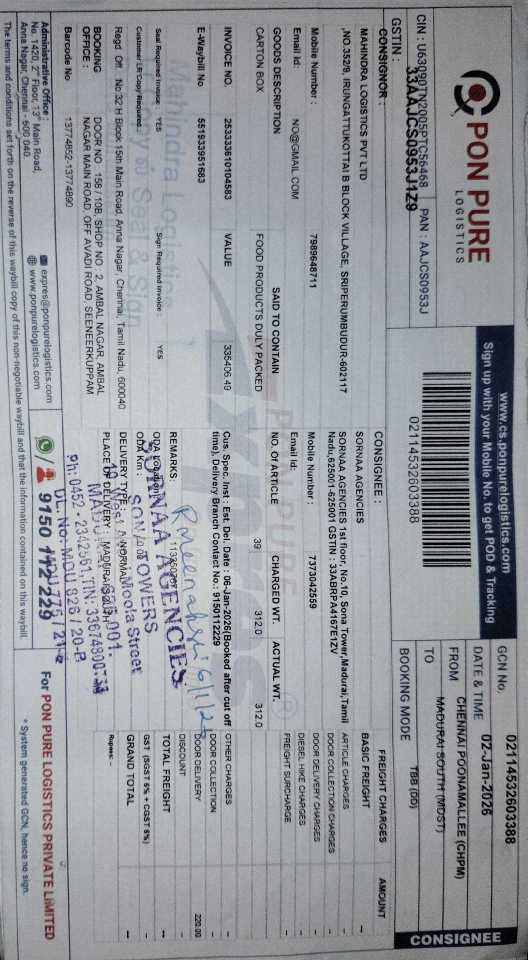 PON PURE
LOGISTICS
CIN : U63090TN2005PTC56468 PAN : AAJCS0953J
GSTIN : 33AAJCS0953J1Z9
www.cs.ponpurelogistics.com
Sign up with your Mobile No. to get POD & Tracking
02114532603388
GCN No. 02114532603388
DATE & TIME 02-Jan-2026
FROM CHENNAI POONAMALLEE (CHPM)
TO MADURAI SOUTH (MDST)
BOOKING MODE TBB (DD)
CONSIGNEE
CONSIGNOR :
MAHINDRA LOGISTICS PVT LTD
,NO.352/9, IRUNGATTUKOTTAI B BLOCK VILLAGE, SRIPERUMBUDUR-602117
Mobile Number : 7989648711
Email Id: NO@GMAIL.COM
CONSIGNEE :
SORNAA AGENCIES
SORNAA AGENCIES 1st floor, No.10, Sona Tower,Madurai,Tamil
Nadu,625001-625001 GSTIN : 33ABRPA4167E1ZV
Mobile Number : 7373042559
Email Id:
GOODS DESCRIPTION SAID TO CONTAIN NO. Of ARTICLE CHARGED WT. ACTUAL WT.
CARTON BOX FOOD PRODUCTS DULY PACKED 39 312.0 312.0
INVOICE NO. 253333610104583 VALUE 335406.49
E-Waybill No 551933951683
Cus. Spec. Inst : Est. Del. Date : 06-Jan-2026(Booked after cut off
time), Delivery Branch Contact No.: 9150112229
Seal Required Invoice: YES Sign Required Invoice: YES
Customer LR Copy Required:
Mahindra Logistics
Seal & Sign
Regd. Off. No:32 H Block 15th Main Road, Anna Nagar, Chennai, Tamil Nadu, 600040
BOOKING OFFICE : DOOR NO. 158 / 10B, SHOP NO. 2, AMBAL NAGAR, AMBAL
NAGAR MAIN ROAD, OFF AVADI ROAD, SEENEERKUPPAM
Barcode No 13774852-13774890
REMARKS:
DELIVERY TYPE : NORMAL
PLACE OF DELIVERY : MADURAI SOUTH
SORNAA AGENCIES
SONA TOWERS
Moola Street
Ph: 0452 - 2342561, TIN: 33674800
FREIGHT CHARGES AMOUNT
BASIC FREIGHT --
ARTICLE CHARGES -
DOOR COLLECTION CHARGES -
DOOR DELIVERY CHARGES -
DIESEL HIKE CHARGES -
FREIGHT SURCHARGE -
OTHER CHARGES -
DOOR COLLECTION -
DOOR DELIVERY 220.00
DISCOUNT -
TOTAL FREIGHT --
GST (SGST 6% + CGST 6%) --
GRAND TOTAL --
Rupees: -
Administrative Office :
No. 1420, 2nd Floor, 13th Main Road,
Anna Nagar, Chennai - 600 040.
expres@ponpurelogistics.com
www.ponpurelogistics.com
9150 112 229
For PON PURE LOGISTICS PRIVATE LIMITED
* System generated GCN, hence no sign.
The terms and conditions set forth on the reverse of this waybill copy of this non-negotiable waybill and that the information contained on this waybill